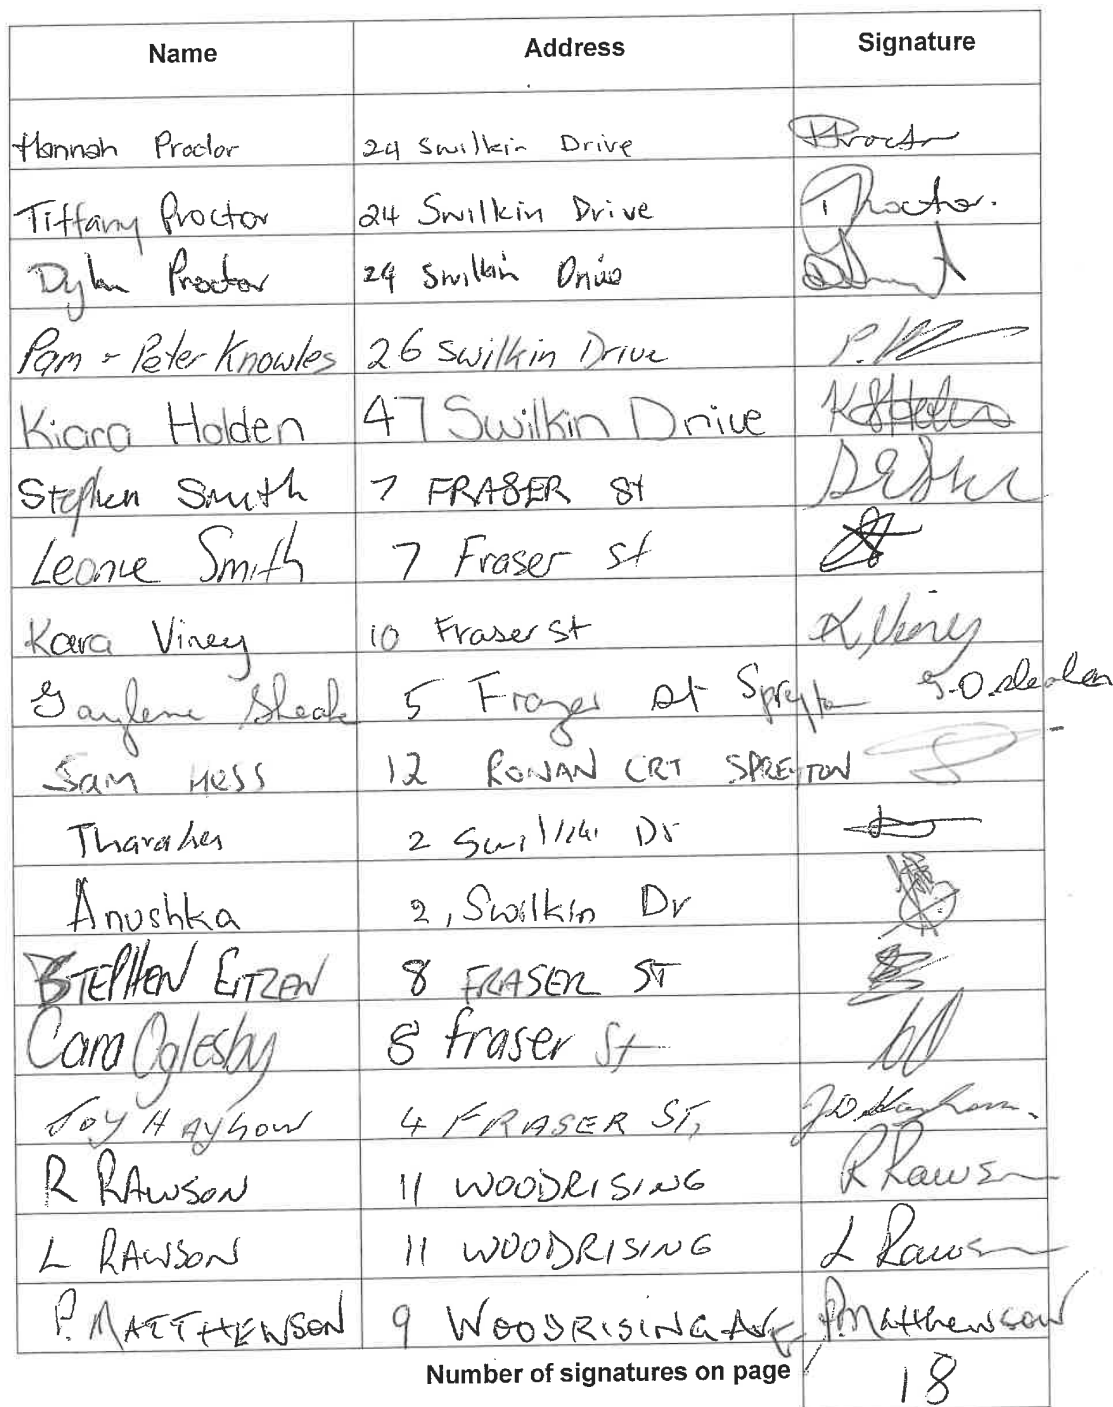 Name Address Signature
Hannah Proctor 24 Swilkin Drive HProctor
Tiffany Proctor 24 Swilkin Drive TProctor.
Dylan Proctor 24 Swilkin Drive
Pam & Peter Knowles 26 Swilkin Drive
Kiara Holden 47 Swilkin Drive
Stephen Smith 7 FRASER St
Leonie Smith 7 Fraser st
Kara Viney 10 Fraser st K. Viney
Gaylene 5 Frazer st Spreyton
Sam HESS 12 RONAN CRT SPREYTON
2 Swilkin Dr
Anushka 2, Swilkin Dr
STEPHEN EITZEN 8 FRASER ST
Cara Oglesby 8 fraser St
JOY HAYHOW 4 FRASER ST,
R RAWSON 11 WOODRISING R Rawson
L RAWSON 11 WOODRISING L Rawson
P. MATTHEWSON 9 WOODRISING AVE P. Matthewson
Number of signatures on page 18